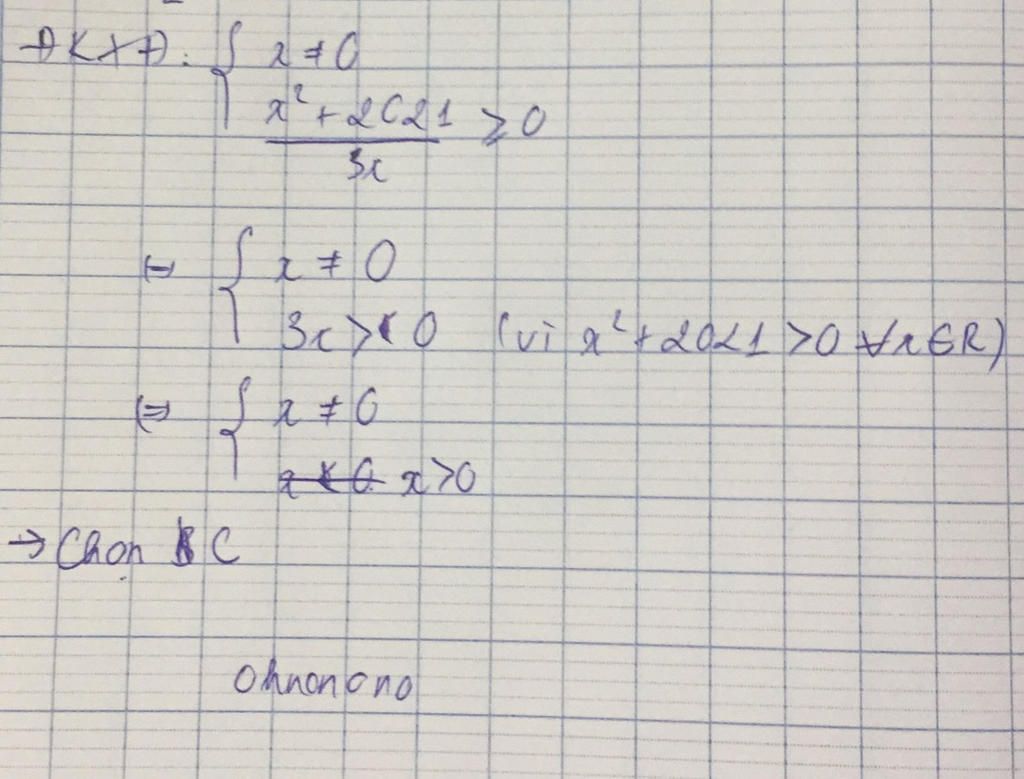 ĐKXĐ: { x ≠ 0
x² + 2021 / 3x ≥ 0
⇔ { x ≠ 0
3x > 0 (vì x² + 2021 > 0 ∀x∈R)
⇔ { x ≠ 0
x < 0 x > 0
→ Chọn C
ohnonono